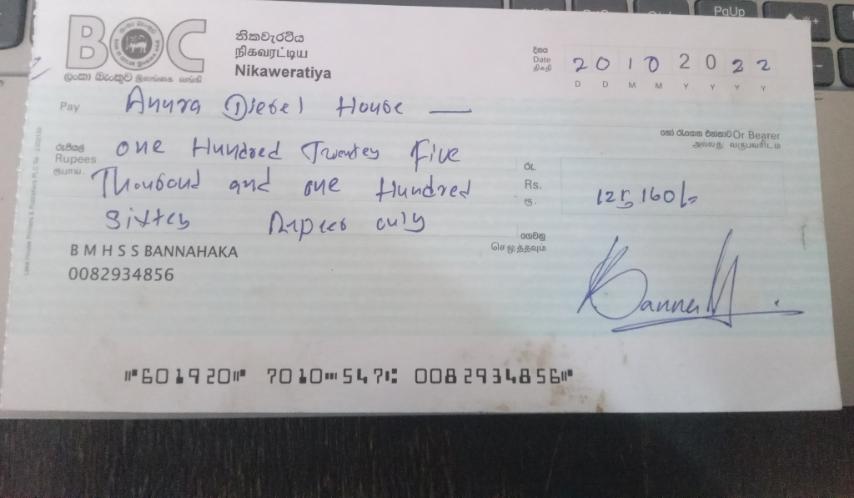 BOC
ලංකා බැංකුව இலங்கை வங்கி
නිකවැරටිය
நிகவரட்டிய
Nikaweratiya
දිනය
Date
திகதி
20102022
D D M M Y Y Y Y
Pay Anura Diesel House —
හෝ රැගෙන එන්නාට Or Bearer
அல்லது வருபவரிடம்
රුපියල්
Rupees
ரூபாய்
One Hundred Twenty Five
Thousand and one Hundred
Sixtey Rupees only
රු.
Rs.
ரூ.
125,160/=
ගෙවනු
செலுத்தவும்
B M H S S BANNAHAKA
0082934856
⑈601920⑈ 7010⑉547⑆ 0082934856⑈
PgUp